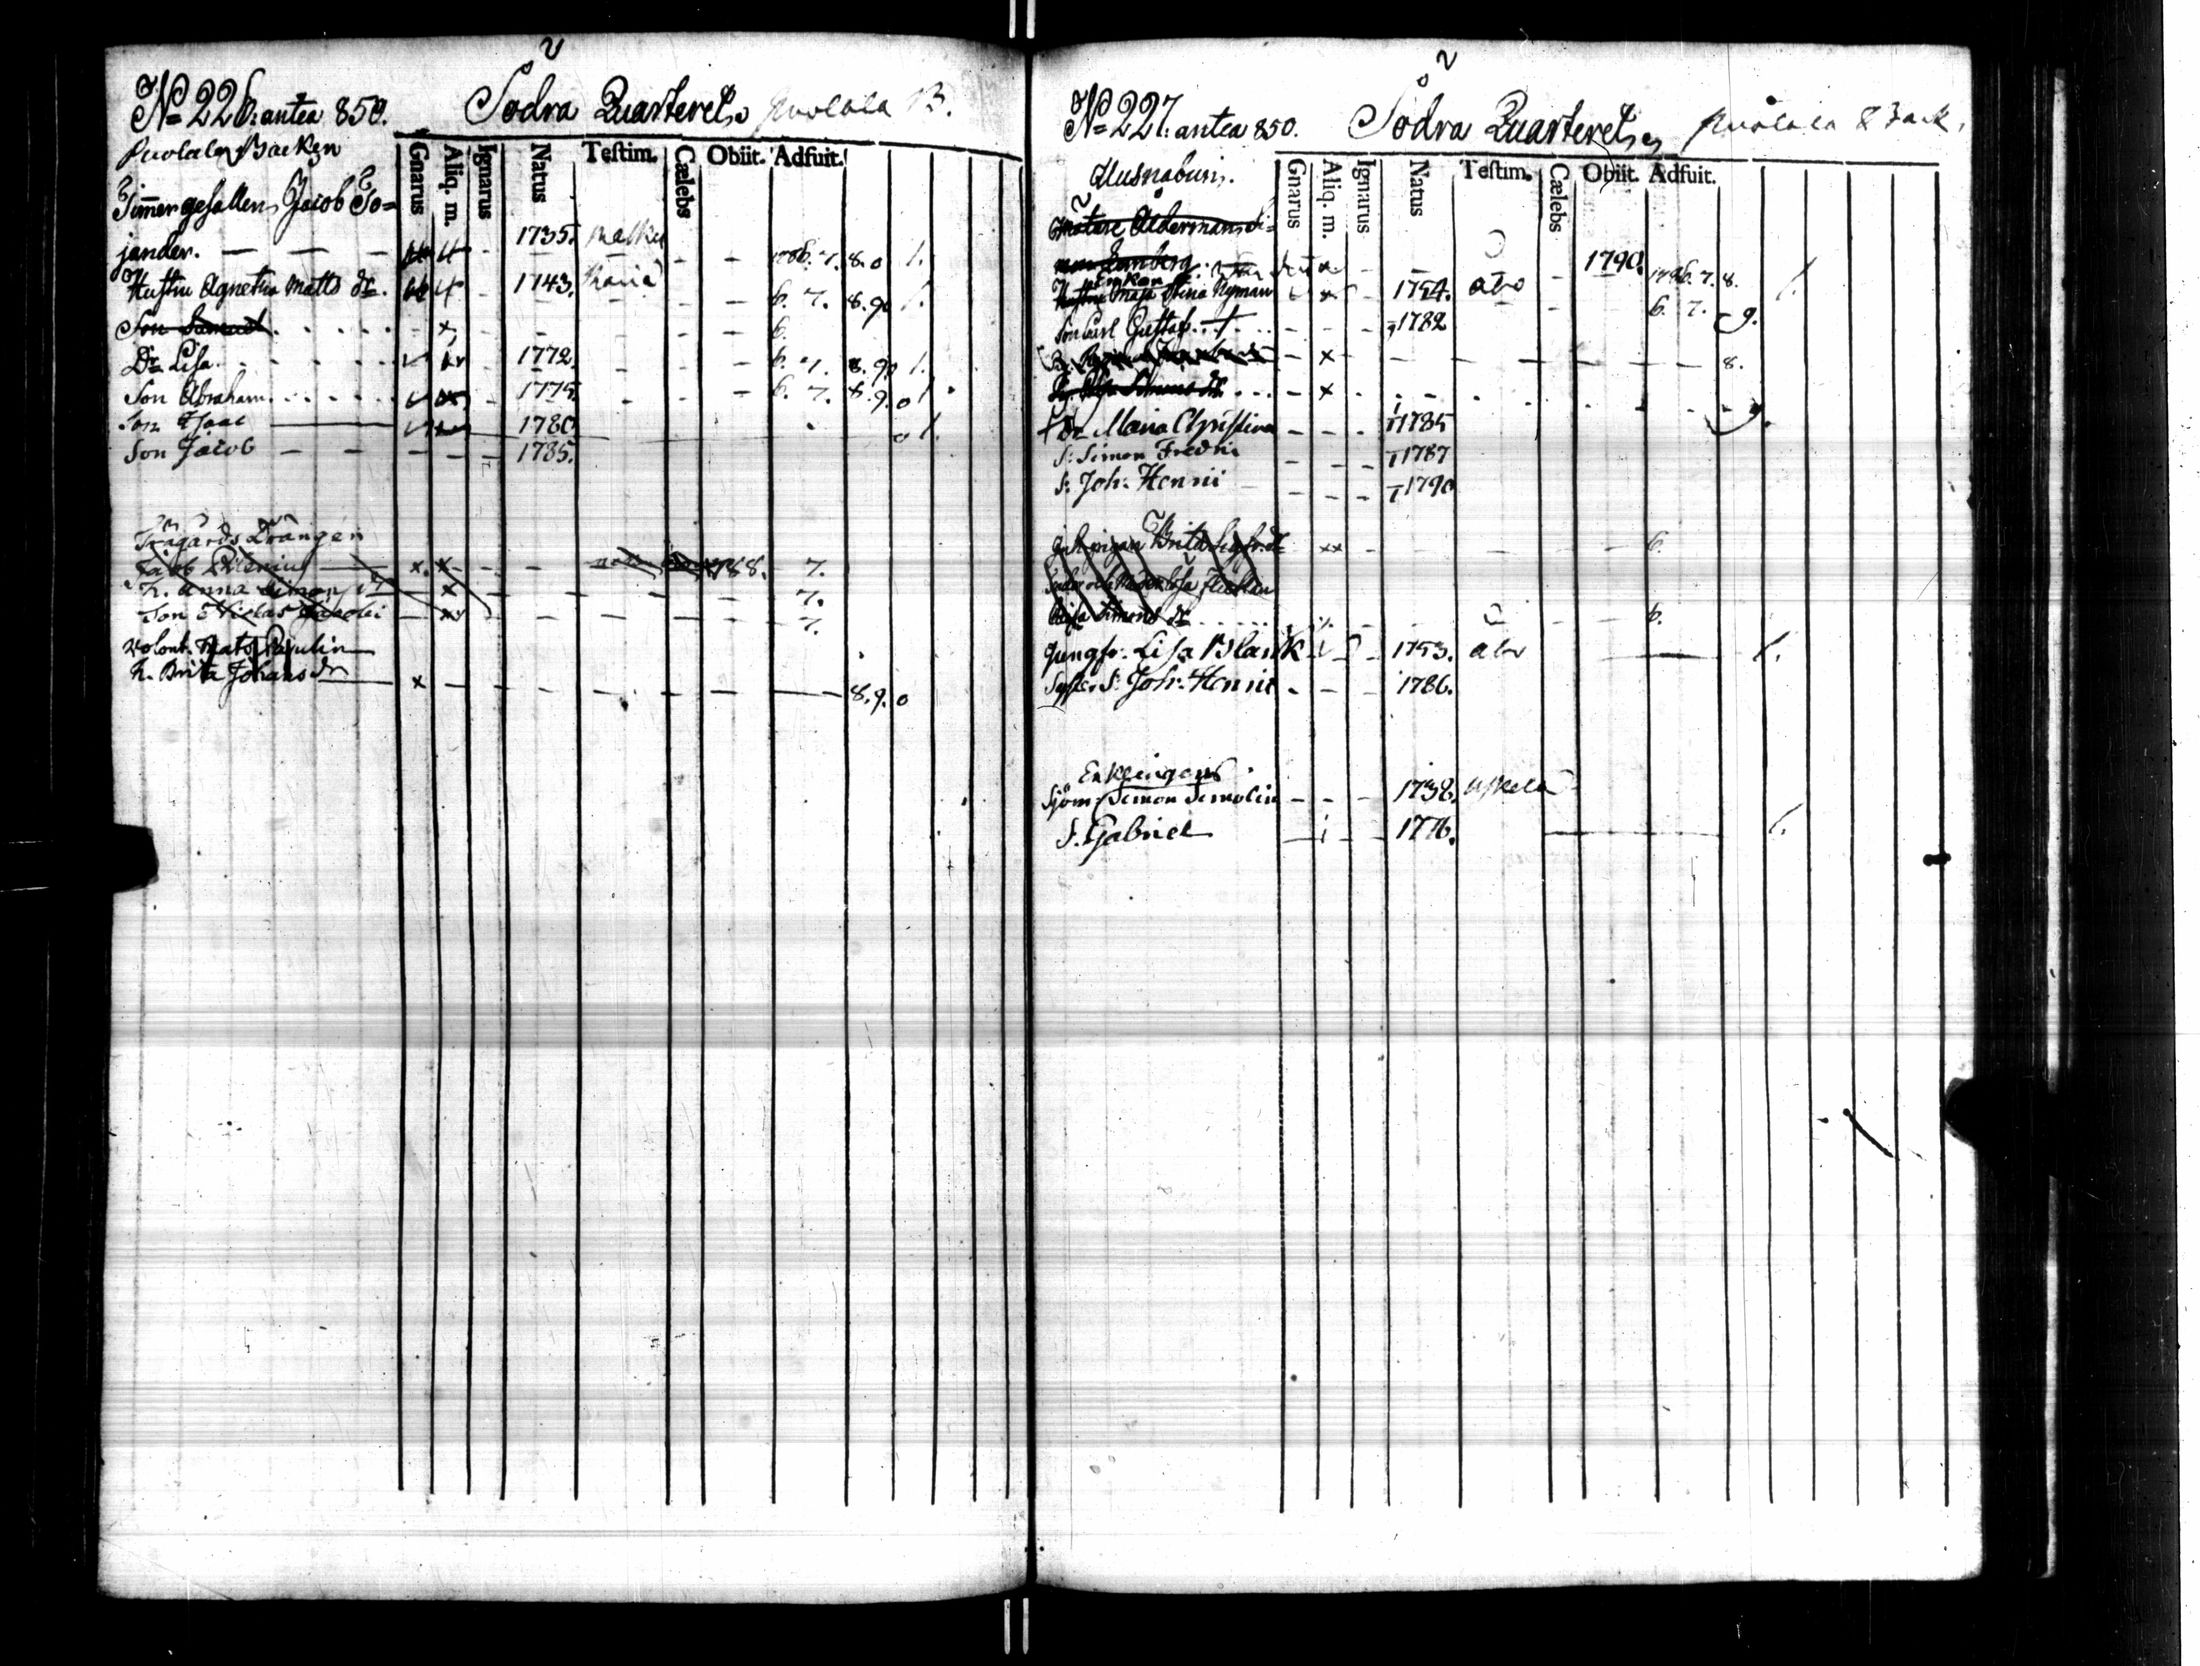 No 226: antea 850. Södra Quarteret, Puolala B.
Puolala Backen
Gnarus Aliq. m. Ignarus Natus Testim. Cælebs Obiit. Adfuit.
Timmergesällen Jacob To=
jander. — — — 1735. 1786. 7. 8. 0 1.
Hustru Agneta Matts dr. 1743. 6. 7. 8. 90 1.
Son Samuel x 6.
Dr Lisa 1772. 6. 7. 8. 90 1.
Son Abraham 1775. 6. 7. 8. 9. 0 1.
Son Isaac 1780. 0 1.
Son Jacob — — — — 1785.
Trägårds Drängen
Jacob x. x 1788. 7.
h. Anna Simons dr x 7.
Son Niclas Jacobi 7.
Volont. Mats Paulin
h. Brita Johans dr x — — — 8. 9. 0
No 227: antea 850. Södra Quarteret, Puolala Back.
Gnarus Aliq. m. Ignarus Natus Testim. Cælebs Obiit. Adfuit.
Målare Ålderman Si=
mon 1790. 1786. 7. 8. 1.
Enkan
Hustru Maja Stina Nyman 1754. Abo 6. 7. 9.
Son Carl Gustaf 1782
x 8.
x 9.
Dr Maria Christina 1785
S: Simon Fredric 1787
S: Joh. Henric 1790
Inh. pigan Brita Sigfr. dr xx 6.
Lisa
Simons dr 6.
Jungfr. Lisa Blank 1753. Abo 1.
Syster S: Joh. Henric 1786.
Enklingen
Sjöm. Simon Simolin — — — 1738.
S. Gabriel 1776. 1.